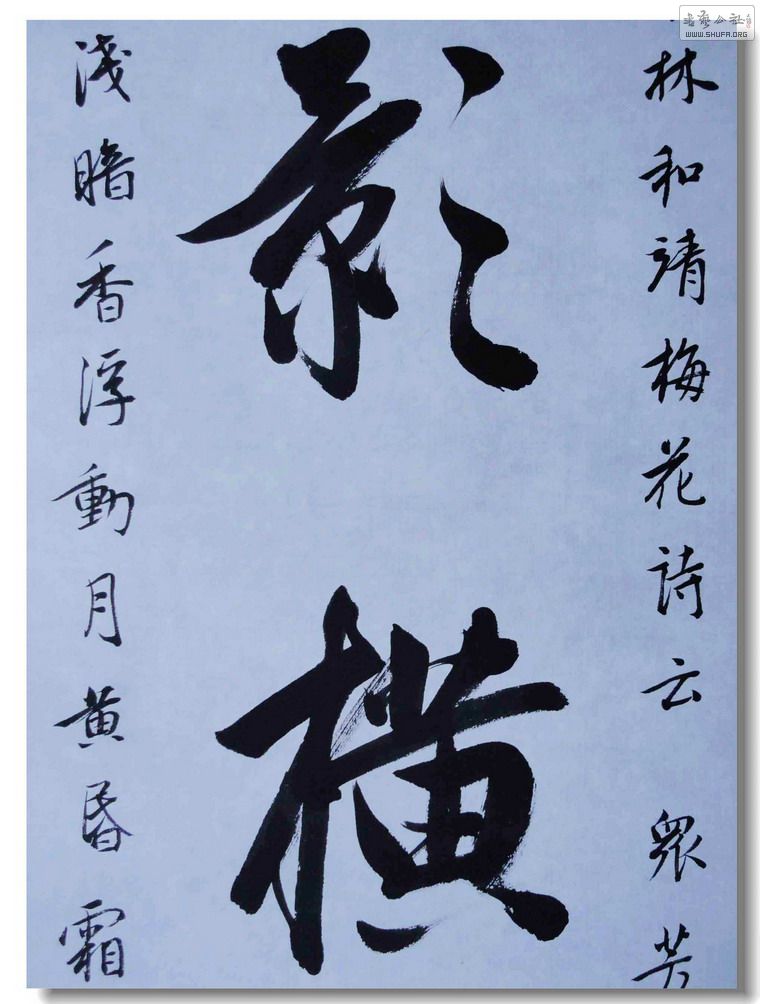 林和靖梅花詩云 衆芳
影橫
淺暗香浮動月黄昏霜
書藝公社
WWW.SHUFA.ORG